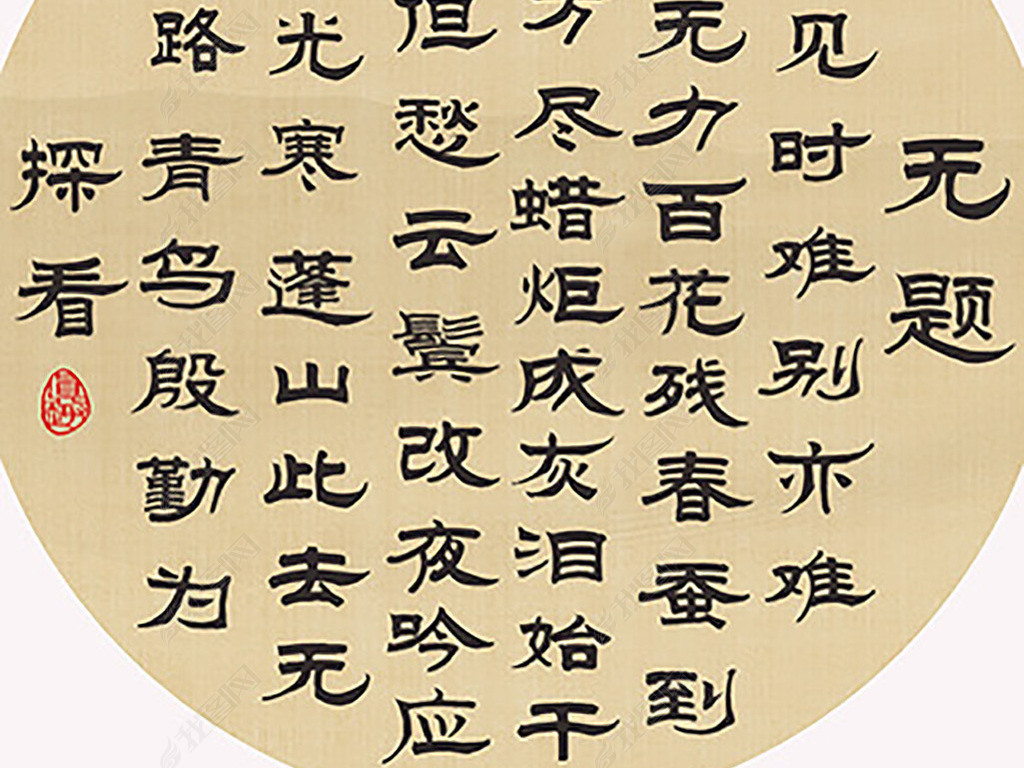 无题
见时难别亦难
无力百花残春蚕到
方尽蜡炬成灰泪始干
但愁云鬓改夜吟应
光寒蓬山此去无
路青鸟殷勤为
探看